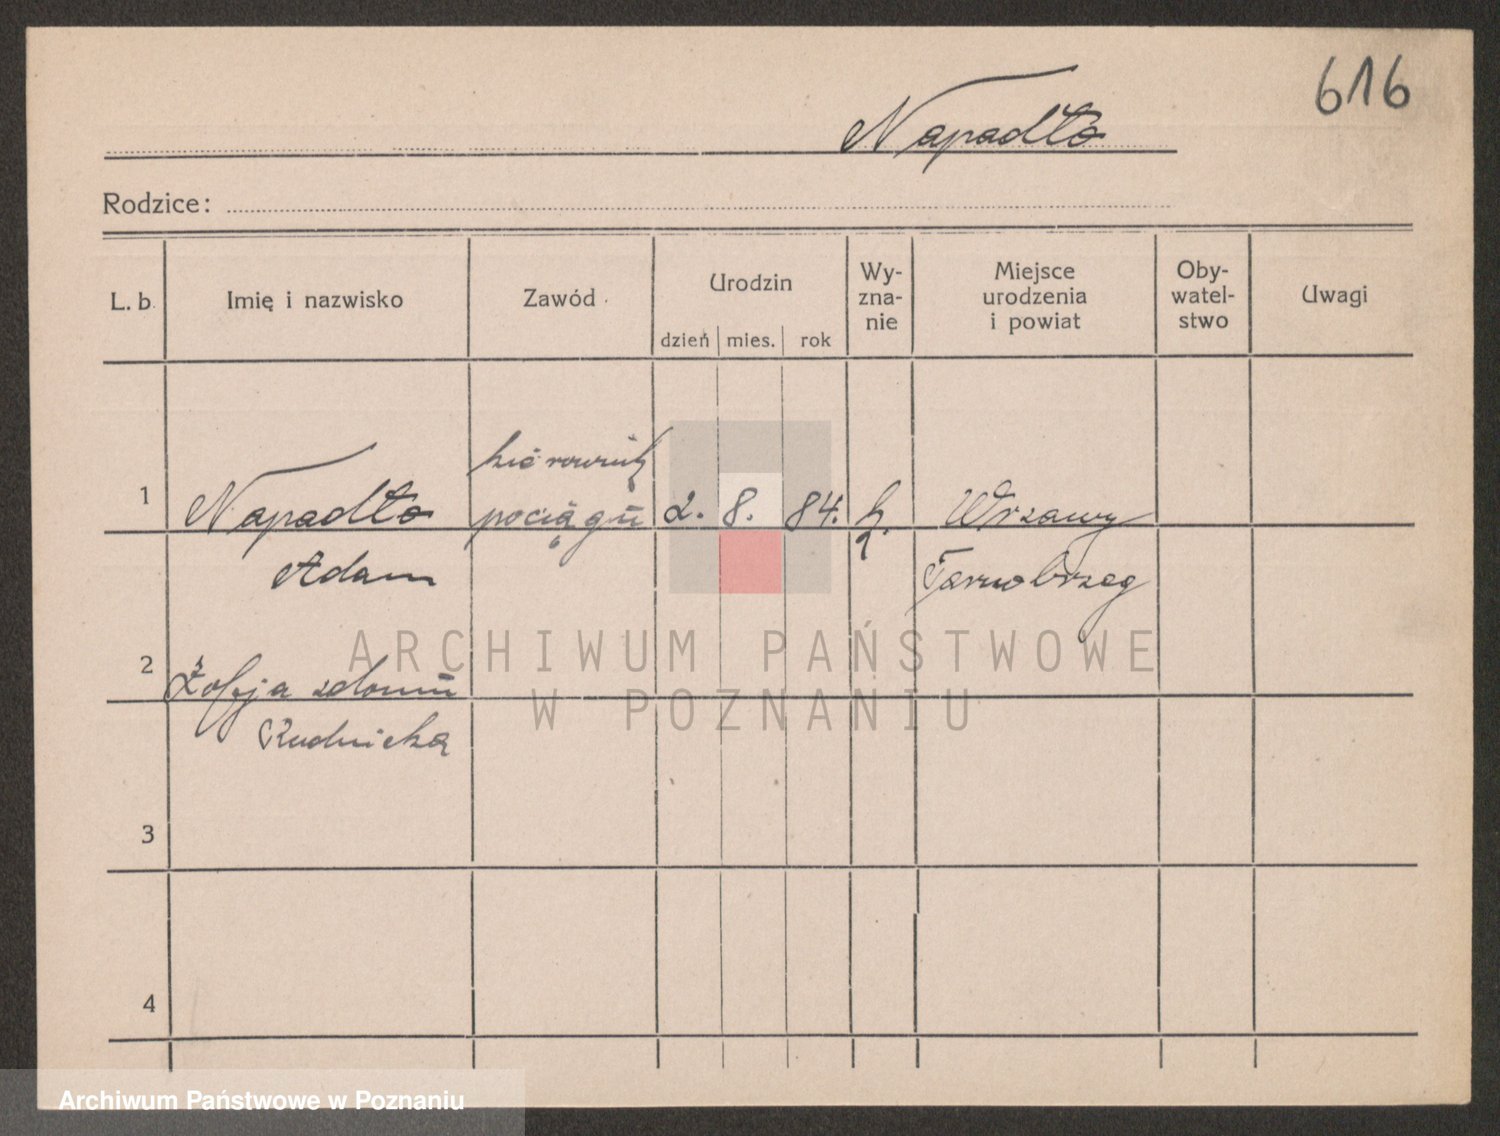 616
Napadło
Rodzice:
L. b. Imię i nazwisko Zawód Urodzin Wy- Miejsce Oby- Uwagi
zna- urodzenia watel-
nie i powiat stwo
dzień mies. rok
kierownik
1 Napadło pociągu 2. 8. 84. k. Wrzawy
Adam Tarnobrzeg
2 Zofja z domu
Rudnicka
3
4
ARCHIWUM PAŃSTWOWE
W POZNANIU
Archiwum Państwowe w Poznaniu